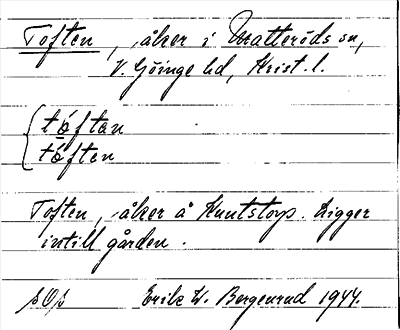 Toften, åker i Matteröds sn,
V. Göinge hd, Krist. l.
tóftan
tóften
Toften, åker å Knutstorp. Ligger
intill gården.
Erik W. Bergenrud 1944.